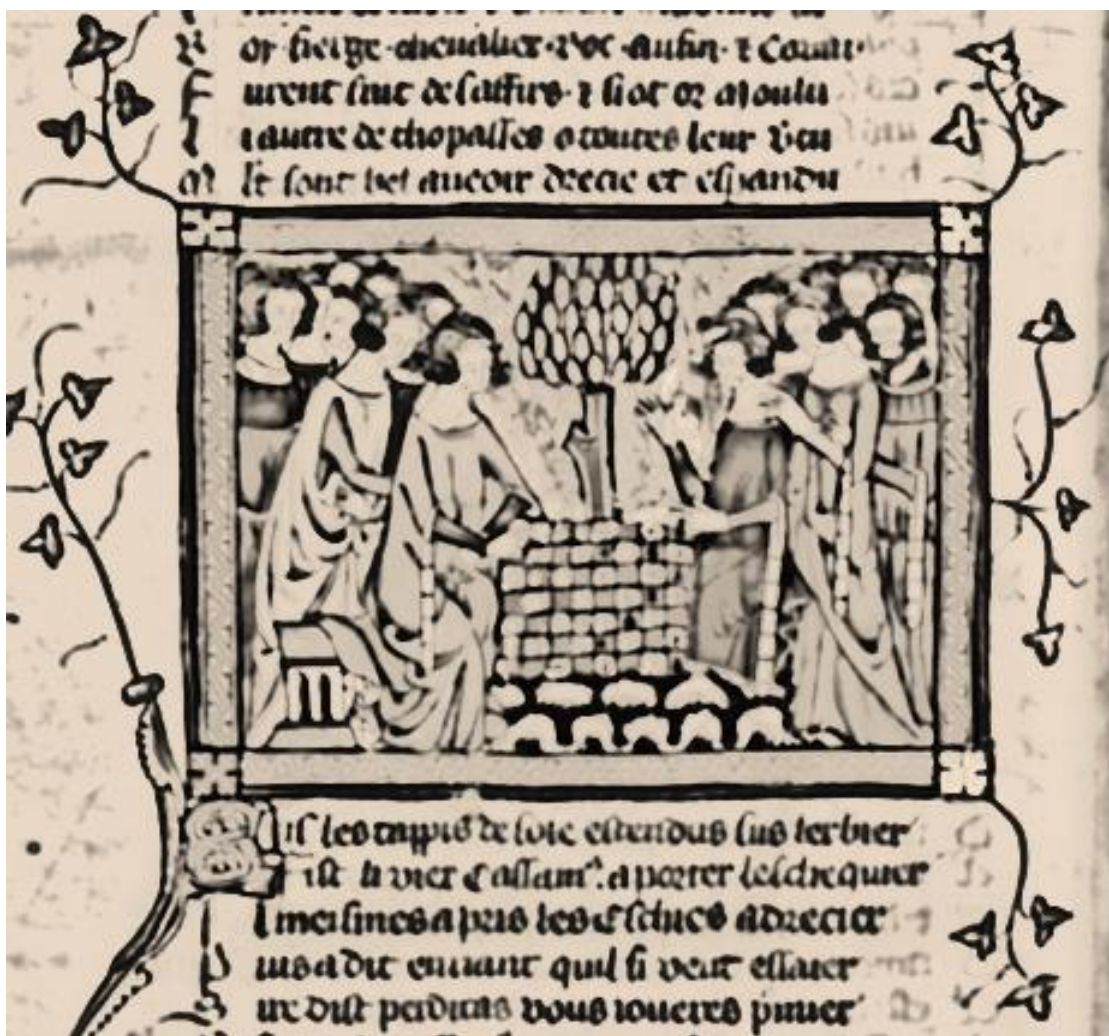 fierge · cheualier · roc · aufin · ⁊
F urent fait de saffirs · ⁊ si ot or moulu
L autre de thopasses o toutes leur v̾tu
M lt sont bel aueoir drecie et espandu
S us les tappis de soie estendus sus lerbier
F ist li viex Cassam⁹ . aporter leschequier
I meismes a pris les esches adrecier
P uis a dit en riant qui si veut essaier
S ire dist perdicas vous ioueres p̾mier